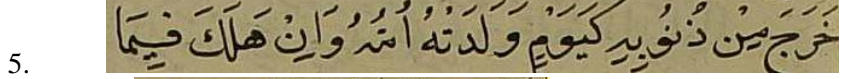 5. خَرَجَ مِنْ ذُنُوبِهِ كَيَوْمٍ وَلَدَتْهُ اُمُّهُ وَاِنْ هَلَكَ فِيْمَا